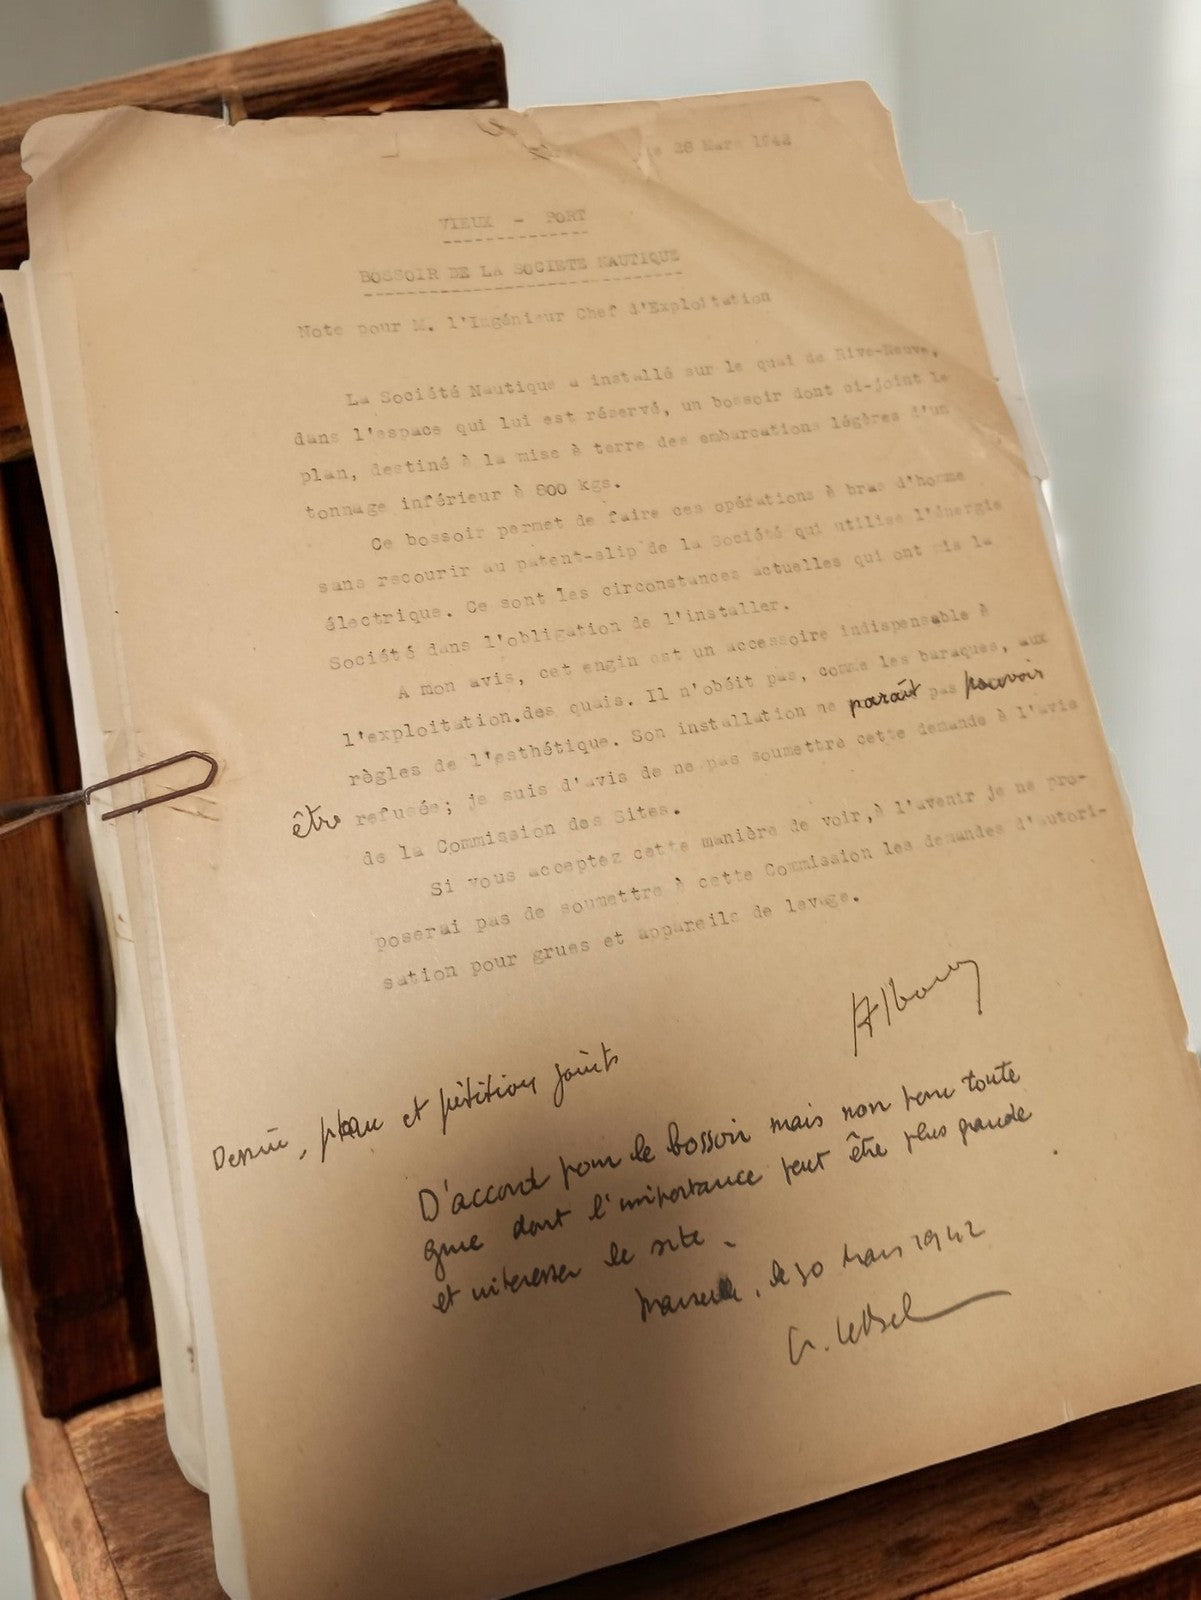 le 28 Mars 1942
VIEUX - PORT
BOSSOIR DE LA SOCIETE NAUTIQUE
Note pour M. l'Ingénieur Chef d'Exploitation
La Société Nautique a installé sur le quai de Rive-Neuve,
dans l'espace qui lui est réservé, un bossoir dont ci-joint le
plan, destiné à la mise à terre des embarcations légères d'un
tonnage inférieur à 800 kgs.
Ce bossoir permet de faire ces opérations à bras d'homme
sans recourir au patent-slip de la Société qui utilise l'énergie
électrique. Ce sont les circonstances actuelles qui ont mis la
Société dans l'obligation de l'installer.
A mon avis, cet engin est un accessoire indispensable à
l'exploitation.des quais. Il n'obéit pas, comme les baraques, aux
règles de l'esthétique. Son installation ne paraît pas pouvoir
être refusée; je suis d'avis de ne pas soumettre cette demande à l'avis
de la Commission des Sites.
Si vous acceptez cette manière de voir,à l'avenir je ne pro-
poserai pas de soumettre à cette Commission les demandes d'autori-
sation pour grues et appareils de levage.
Dessin, plan et pétition joints
D'accord pour le bossoir mais non pour toute
grue dont l'importance peut être plus grande
et intéresser le site.
Marseille, le 30 Mars 1942